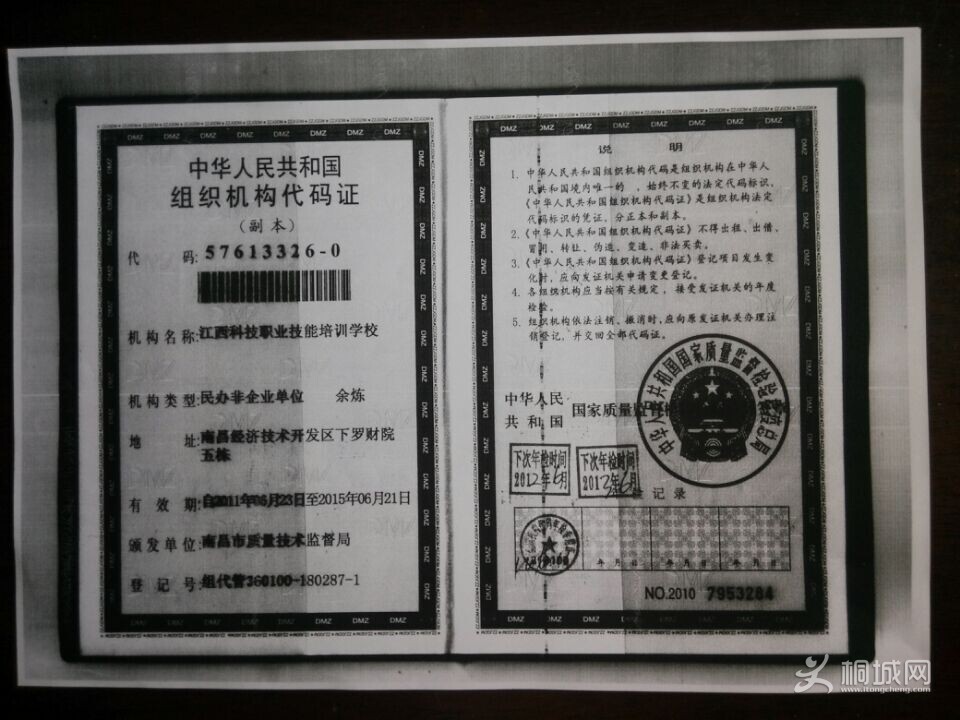 中华人民共和国
组织机构代码证
(副本)
代 码:57613326-0
机构名称:江西科技职业技能培训学校
机构类型:民办非企业单位 余炼
地 址:南昌经济技术开发区下罗财院
五栋
有 效 期:自2011年06月23日至2015年06月21日
颁发单位:南昌市质量技术监督局
登 记 号:组代管360100-180287-1
说 明
1. 中华人民共和国组织机构代码是组织机构在中华人
民共和国境内唯一的、始终不变的法定代码标识,
《中华人民共和国组织机构代码证》是组织机构法定
代码标识的凭证,分正本和副本。
2.《中华人民共和国组织机构代码证》不得出租、出借、
冒用、转让、伪造、变造、非法买卖。
3.《中华人民共和国组织机构代码证》登记项目发生变
化时,应向发证机关申请变更登记。
4. 各组织机构应当按有关规定,接受发证机关的年度
检验。
5. 组织机构依法注销、撤消时,应向原发证机关办理注
销登记,并交回全部代码证。
中华人民
共 和 国
国家质量监督检
中华人民共和国国家质量监督检验检疫总局
下次年检时间
2012年6月
下次年检时间
2012年6月
登记录
年 月 日 年 月 日 年 月 日
NO.2010 7953284
DMZ
桐城网
www.itongcheng.com